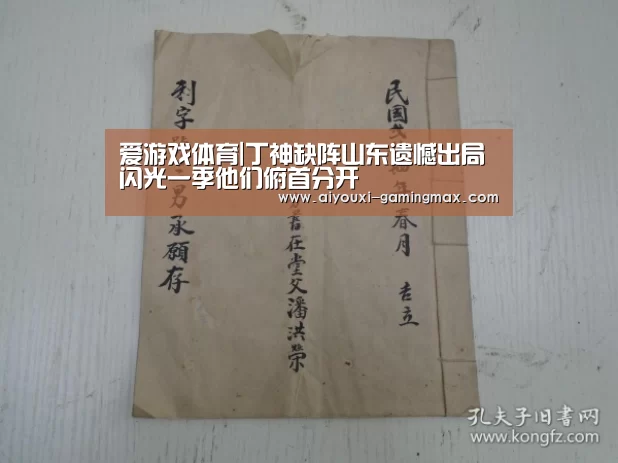 爱游戏体育|丁神缺阵山东遗憾出局
闪光一季他们俯首分开
www.aiyouxi-gamingmax.com
民国 年春月 吉立
書在堂父潘洪榮
剥字 男承願存
孔夫子旧书网
www.kongfz.com